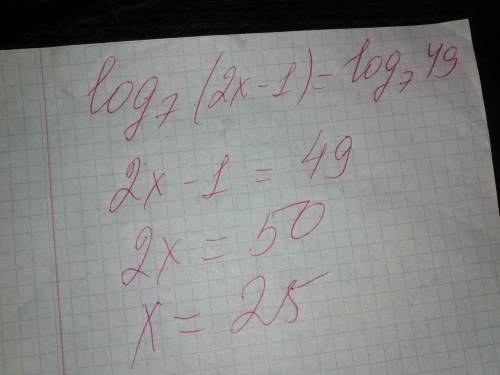 log₇(2x-1)=log₇49
2x-1=49
2x=50
x=25